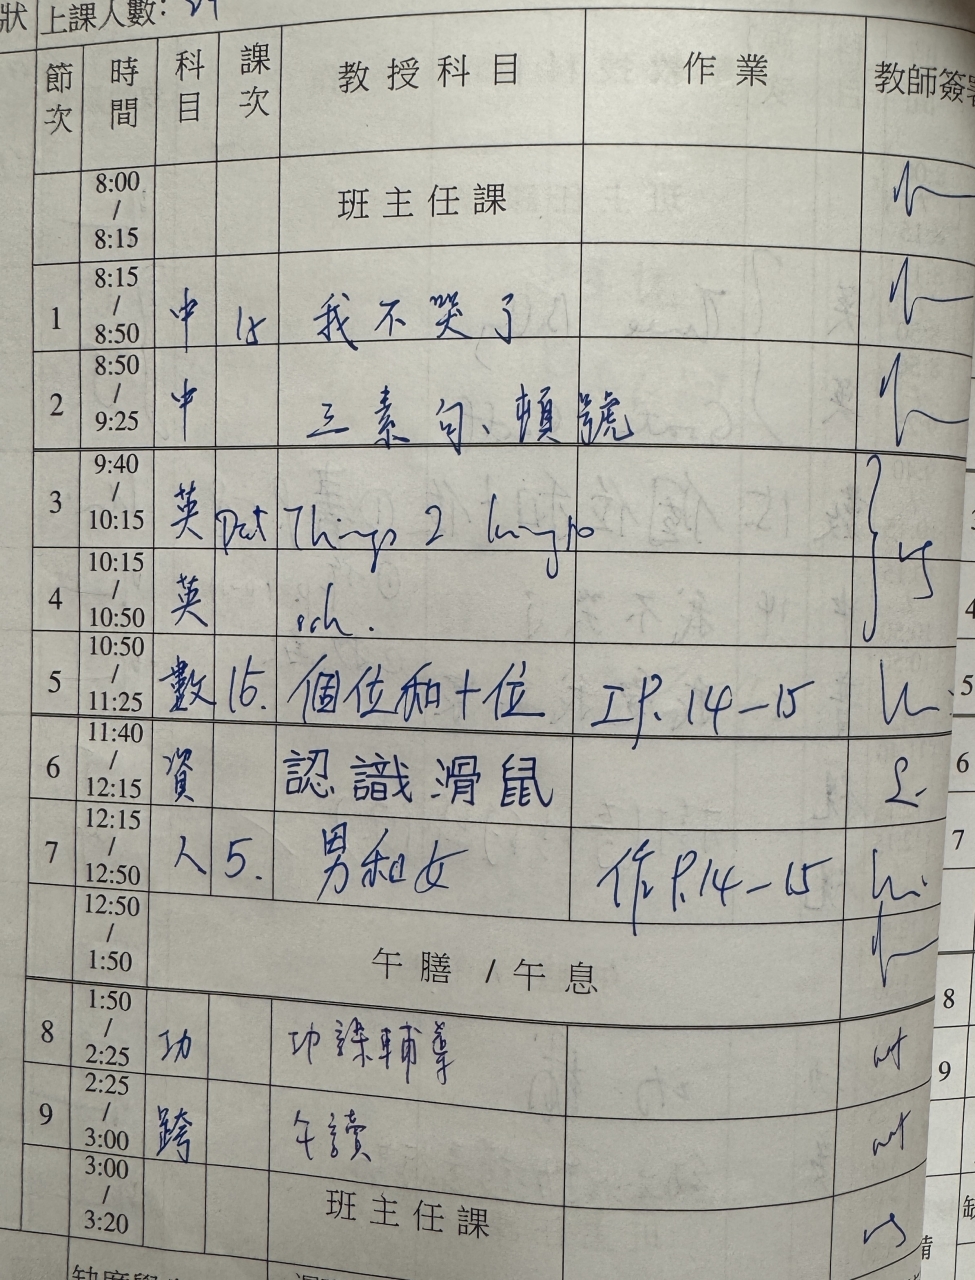 狀 上課人數：
節次 時間 科目 課次 教授科目 作業 教師簽署
8:00 / 8:15 班主任課
1 8:15 / 8:50 中 我不哭了
2 8:50 / 9:25 中 三素句、頓號
3 9:40 / 10:15 英 Things 2
4 10:15 / 10:50 英 sch.
5 10:50 / 11:25 數 15. 個位和十位 工P.14-15
6 11:40 / 12:15 資 認識滑鼠
7 12:15 / 12:50 人 5. 男和女 作P.14-15
12:50 / 1:50 午膳 / 午息
8 1:50 / 2:25 功 功課輔導
9 2:25 / 3:00 跨 午讀
3:00 / 3:20 班主任課
4
5
6
7
8
9